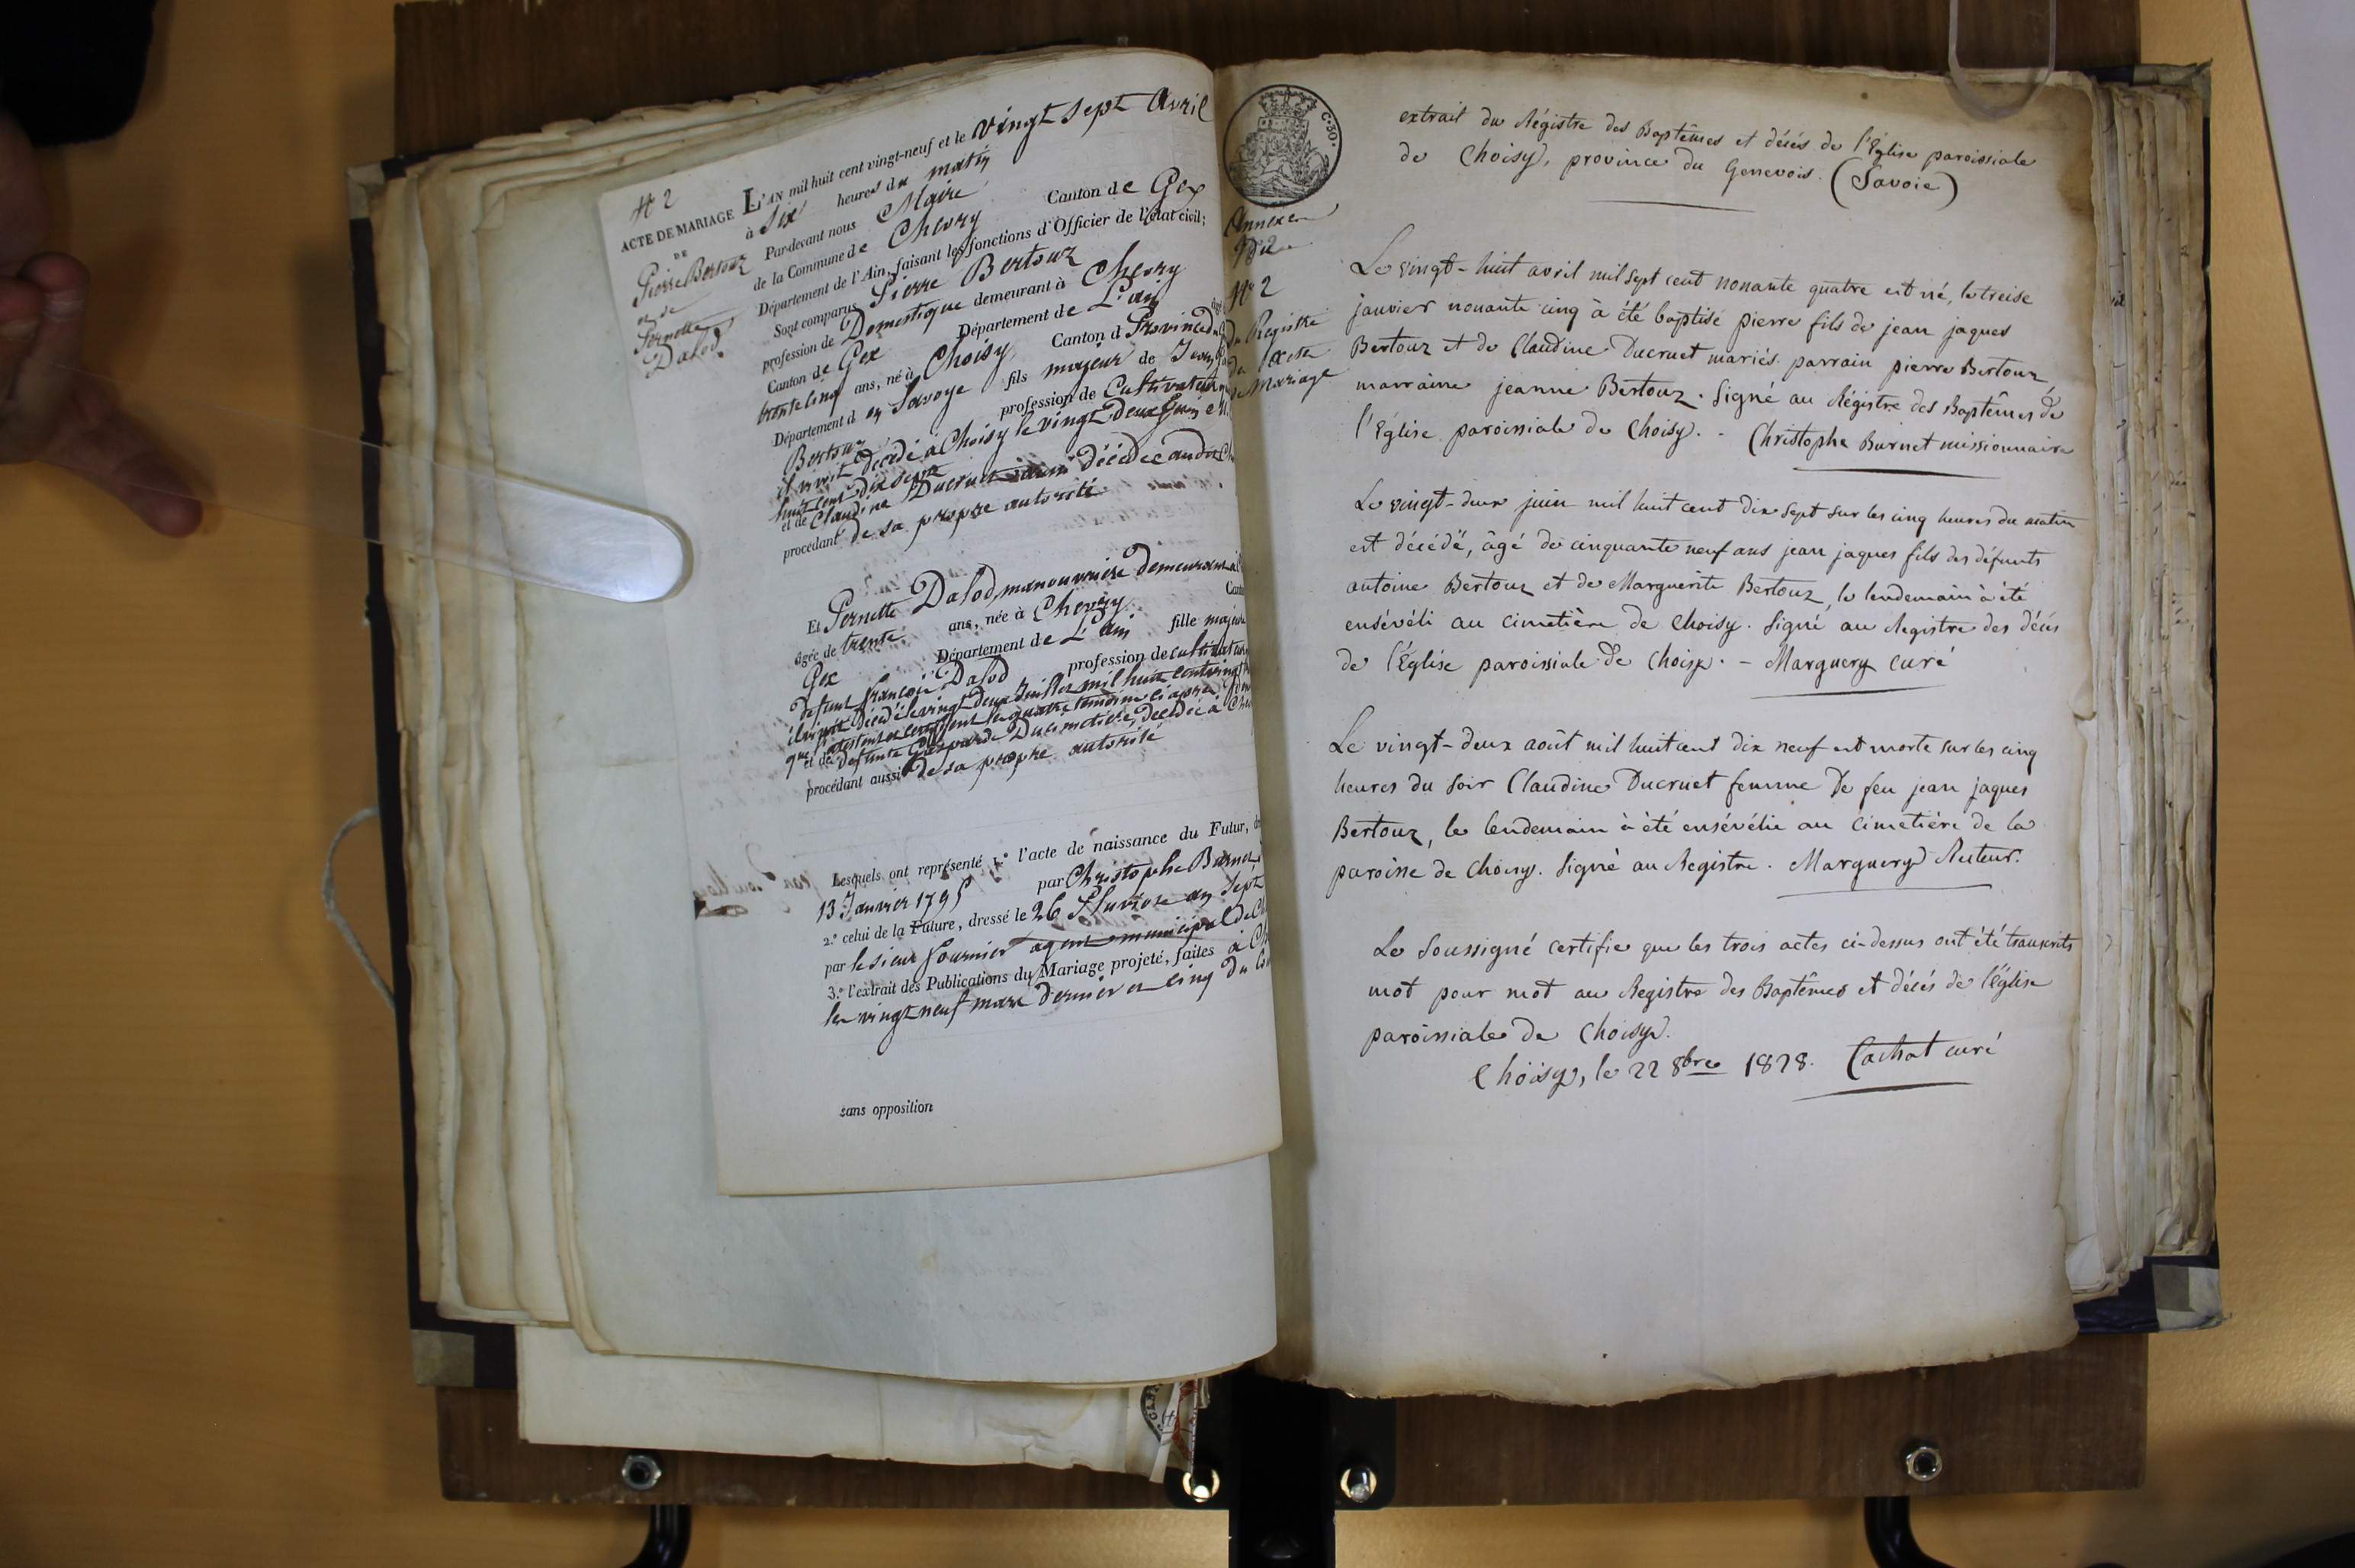 N° 2
ACTE DE MARIAGE
DE
Pierre Bertouz
et de
Pernette
Dalod
L'AN mil huit cent vingt-neuf et le vingt sept Avril
à Six heures du matin
Par-devant nous Maire
de la Commune de Chevry Canton de Gex
Département de l'Ain, faisant les fonctions d'Officier de l'état civil;
Sont comparus Pierre Bertouz
profession de Domestique demeurant à Chevry
Canton de Gex Département de L'ain
trente cinq ans, né à Choisy Canton d Province du
Département d en Savoye fils majeur de Jean
Bertouz profession de Cultivateur
décédé à Choisy le vingt deux Juin
huit cent dix sept
et de Claudine Ducruet décédée audit
procédant de sa propre autorité
Et Pernette Dalod, manouvrière demeurant à
âgée de trente ans, née à Chevry
Gex Département de L'ain fille majeure
defunt françois Dalod profession de cultivateur
décédé le vingt deux Juillet mil huit cent vingt
que l'attestent et certifient les quatre témoins ci après
et de defunte Gasparde décédée à
procédant aussi de sa propre autorité
Lesquels ont représenté 1.° l'acte de naissance du Futur,
13 Janvier 1795 par Christophe Burnet
2.° celui de la Future, dressé le 26 Pluviose an Sept
par le sieur fournier agent municipal de
3.° l'extrait des Publications du Mariage projeté, faites à
les vingt neuf mars dernier et cinq du
sans opposition
C. 30.
Annexe
N° 2
du Registre
de Mariage
extrait du Régistre des Baptêmes et décés de l'Église paroissiale
de Choisy, province du Genevois. (Savoie)
Le vingt-huit avril mil sept cent nonante quatre est né, le treise
janvier nonante cinq à été baptisé pierre fils de jean jaques
Bertouz et de Claudine Ducruet mariés. parrain pierre Bertouz,
marraine jeanne Bertouz. Signé au Régistre des Baptêmes de
l'Eglise paroissiale de Choisy. - Christophe Burnet missionnaire
Le vingt-deux juin mil huit cent dix sept sur les cinq heures du matin
est décédé, âgé de cinquante neuf ans jean jaques fils des défunts
antoine Bertouz et de Marguerite Bertouz, le lendemain à été
ensévéli au cimetière de Choisy. Signé au Registre des décés
de l'Église paroissiale de Choisy. - Marguery curé
Le vingt-deux août mil huit cent dix neuf est morte sur les cinq
heures du soir Claudine Ducruet femme De feu jean jaques
Bertouz, le lendemain à été ensévélie au cimetière de la
paroisse de Choisy. Signé au Registre. Marguery Recteur.
Le Soussigné certifie que les trois actes ci-dessus ont été transcrits
mot pour mot au Registre des Baptêmes et décés de l'Église
paroissiale de Choisy.
Choisy, le 22 8bre 1828. Cachat curé